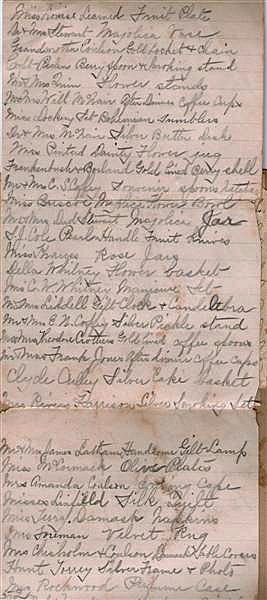 Miss Louise Learned Fruit Plate
Dr & Mrs Stewart Majolica Vase
Grandmother Coulson Gold locket & Chain
Berry Spoon & Smoking stand
Mr & Mrs Finn Flower stands
Mr & Mrs Will McNair After Dinner Coffee Cups
Miss Lockey Set Bohemian Tumblers
Dr & Mrs McNair Silver Butter Dish
Mrs Pinted Dainty Flower Jug
Gold Lined Berry shell
Mr & Mrs C. Slapley Souvenir spoons
Mrs Briscoe Flower Bowl
Mr & Mrs Dud Stewart Majolica Jar
S.J. Cole Pearl Handle Fruit Knives
Miss Wanzer Rose Jar
Della Whitney Flower basket
Mrs C. W. Whitney Manicure Set
Mr & Mrs Liddell Gilt Clock & Candelabra
Mr & Mrs E. N. Coffey Silver Pickle stand
Mr & Mrs Theodore Crothers Gold Lined coffee spoons
Mr & Mrs Frank Jones After dinner Coffee Cups
Clyde Silver Cake basket
Harrison Silver Smoking Set
Mr & Mrs James Latham Handsome Gilt Lamp
Mrs McCormack Olive Plates
Mrs Amanda Coulson Cape
Misses Linfield Silk Quilt
Miss Terry Damask Napkins
Mrs Foreman Velvet Rug
Mrs Chisholm & Coulson Damask Table Covers
Hunt Terry Silver Frame & Photo
Rockwood Perfume Case